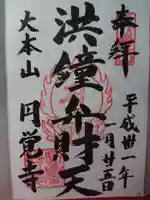 奉拝
平成卅一年
一月廿五日
洪鐘弁財天
大本山
円覚寺